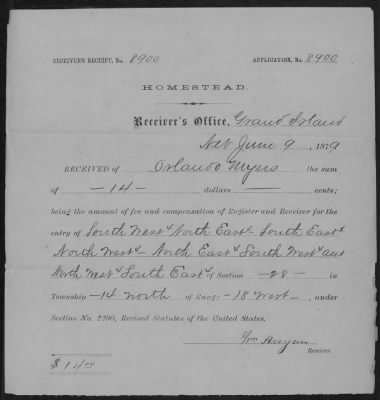 RECEIVER'S RECEIPT, No. 8900 APPLICATION, No. 8900
HOMESTEAD.
Receiver's Office, Grand Island
Neb June 9, 1879
RECEIVED of Orlando Myers the sum
of —14— dollars — cents;
being the amount of fee and compensation of Register and Receiver for the
entry of South West ¼ North East ¼ South East ¼
North West ¼ North East ¼ South West ¼ and
North West ¼ South East ¼ of Section —28— in
Township —14 North of Range —18 West—, under
Section No. 2290, Revised Statutes of the United States.
Wm Anyan
Receiver.
$ 14.00